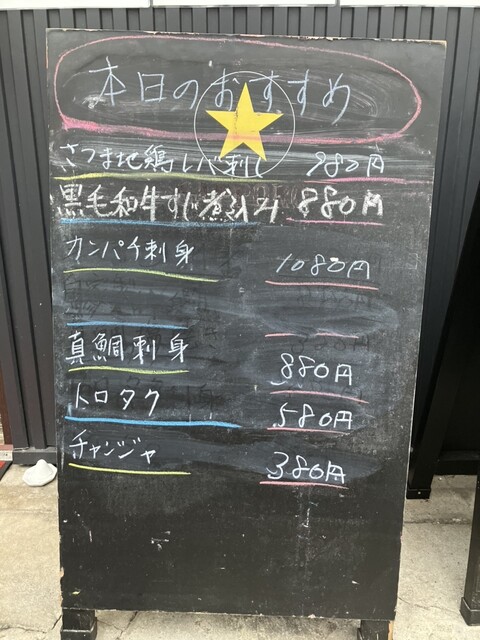 本日のおすすめ
さつま地鶏レバ刺し 980円
黒毛和牛すじ煮込み 880円
カンパチ刺身 1080円
真鯛刺身 880円
トロタク 580円
チャンジャ 380円